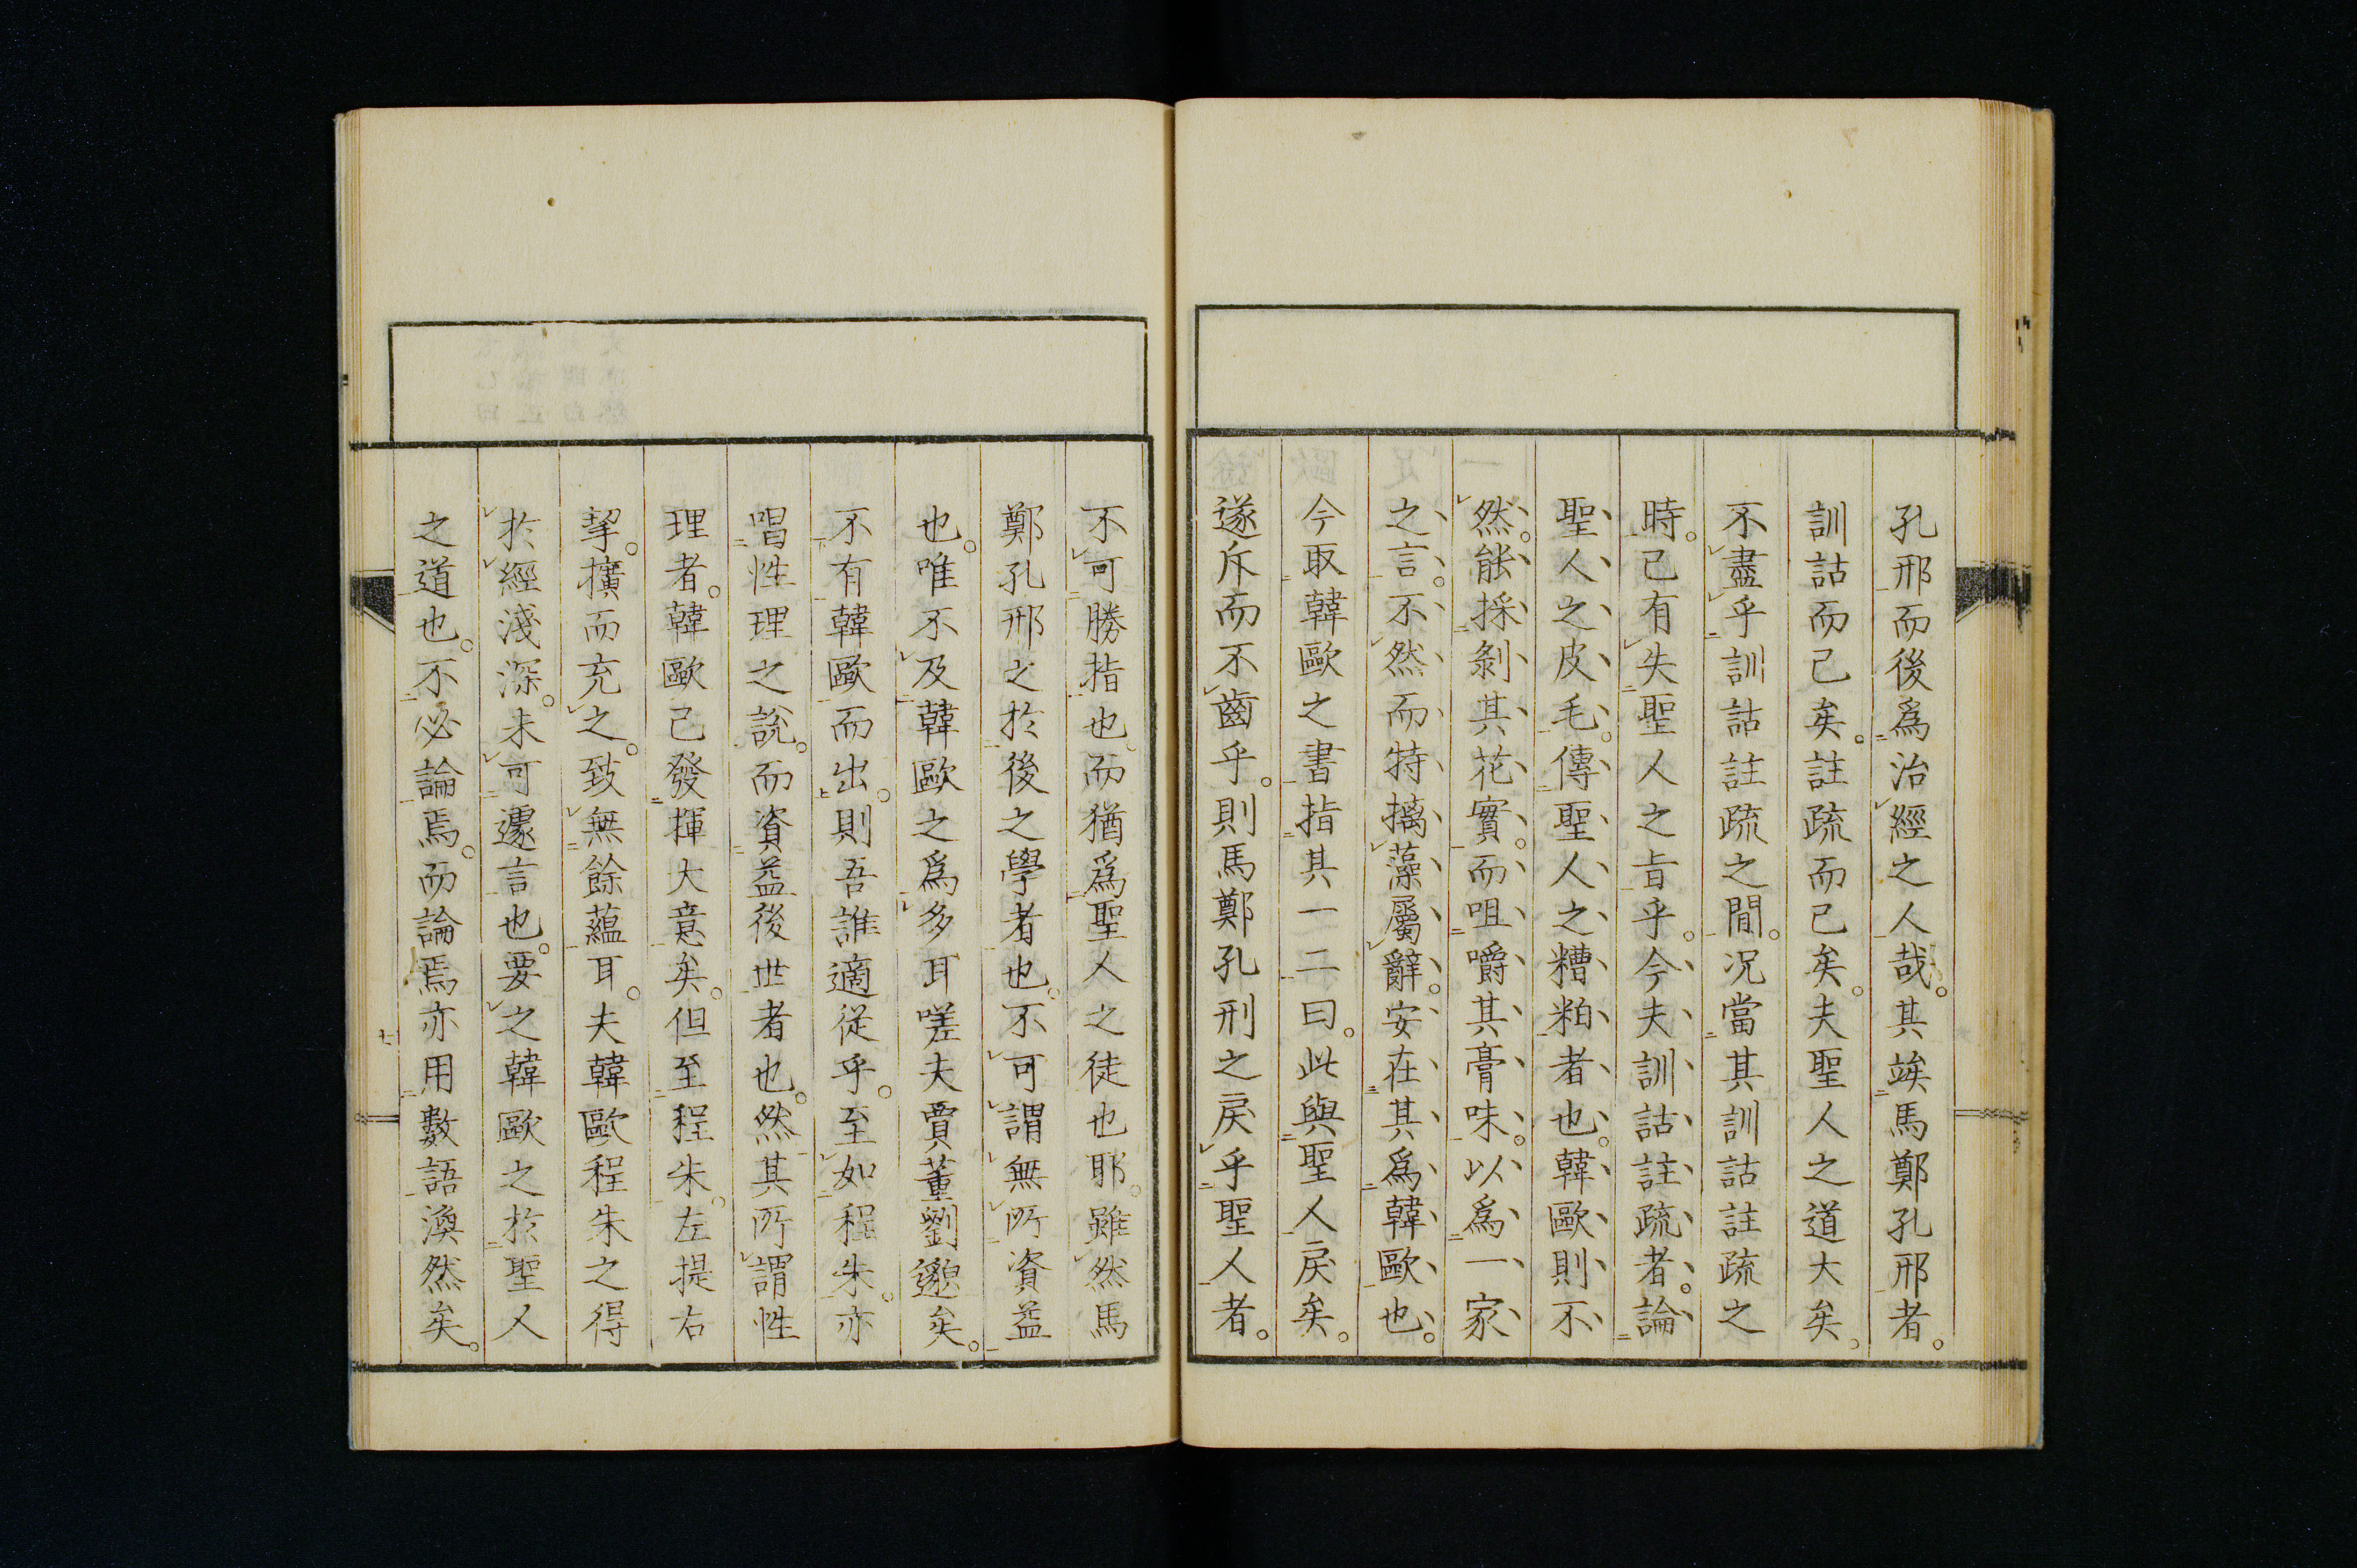 孔邢而後爲治經之人哉。其竢馬鄭孔邢者。
訓詁而已矣。註疏而已矣。夫聖人之道大矣。
不盡乎訓詁註疏之閒。况當其訓詁註疏之
時。已有失聖人之旨乎。今夫訓詁註疏者。論
聖人之皮毛。傳聖人之糟粕者也。韓歐則不
然。能採剝其花實。而咀嚼其膏味。以爲一家
之言。不然而特摛藻屬辭。安在其爲韓歐也。
今取韓歐之書指其一二曰。此與聖人戾矣。
遂斥而不齒乎。則馬鄭孔刑之戾乎聖人者。
不可勝指也。而猶爲聖人之徒也耶。雖然馬
鄭孔邢之於後之學者也。不可謂無所資益
也。唯不及韓歐之爲多耳嗟夫賈董劉邈矣。
不有韓歐而出。則吾誰適從乎。至如程朱。亦
唱性理之說。而資益後世者也。然其所謂性
理者。韓歐已發揮大意矣。但至程朱。左提右
挈。擴而充之。致無餘蘊耳。夫韓歐程朱之得
於經淺深。未可遽言也。要之韓歐之於聖人
之道也。不必論焉。而論焉亦用數語渙然矣。
七